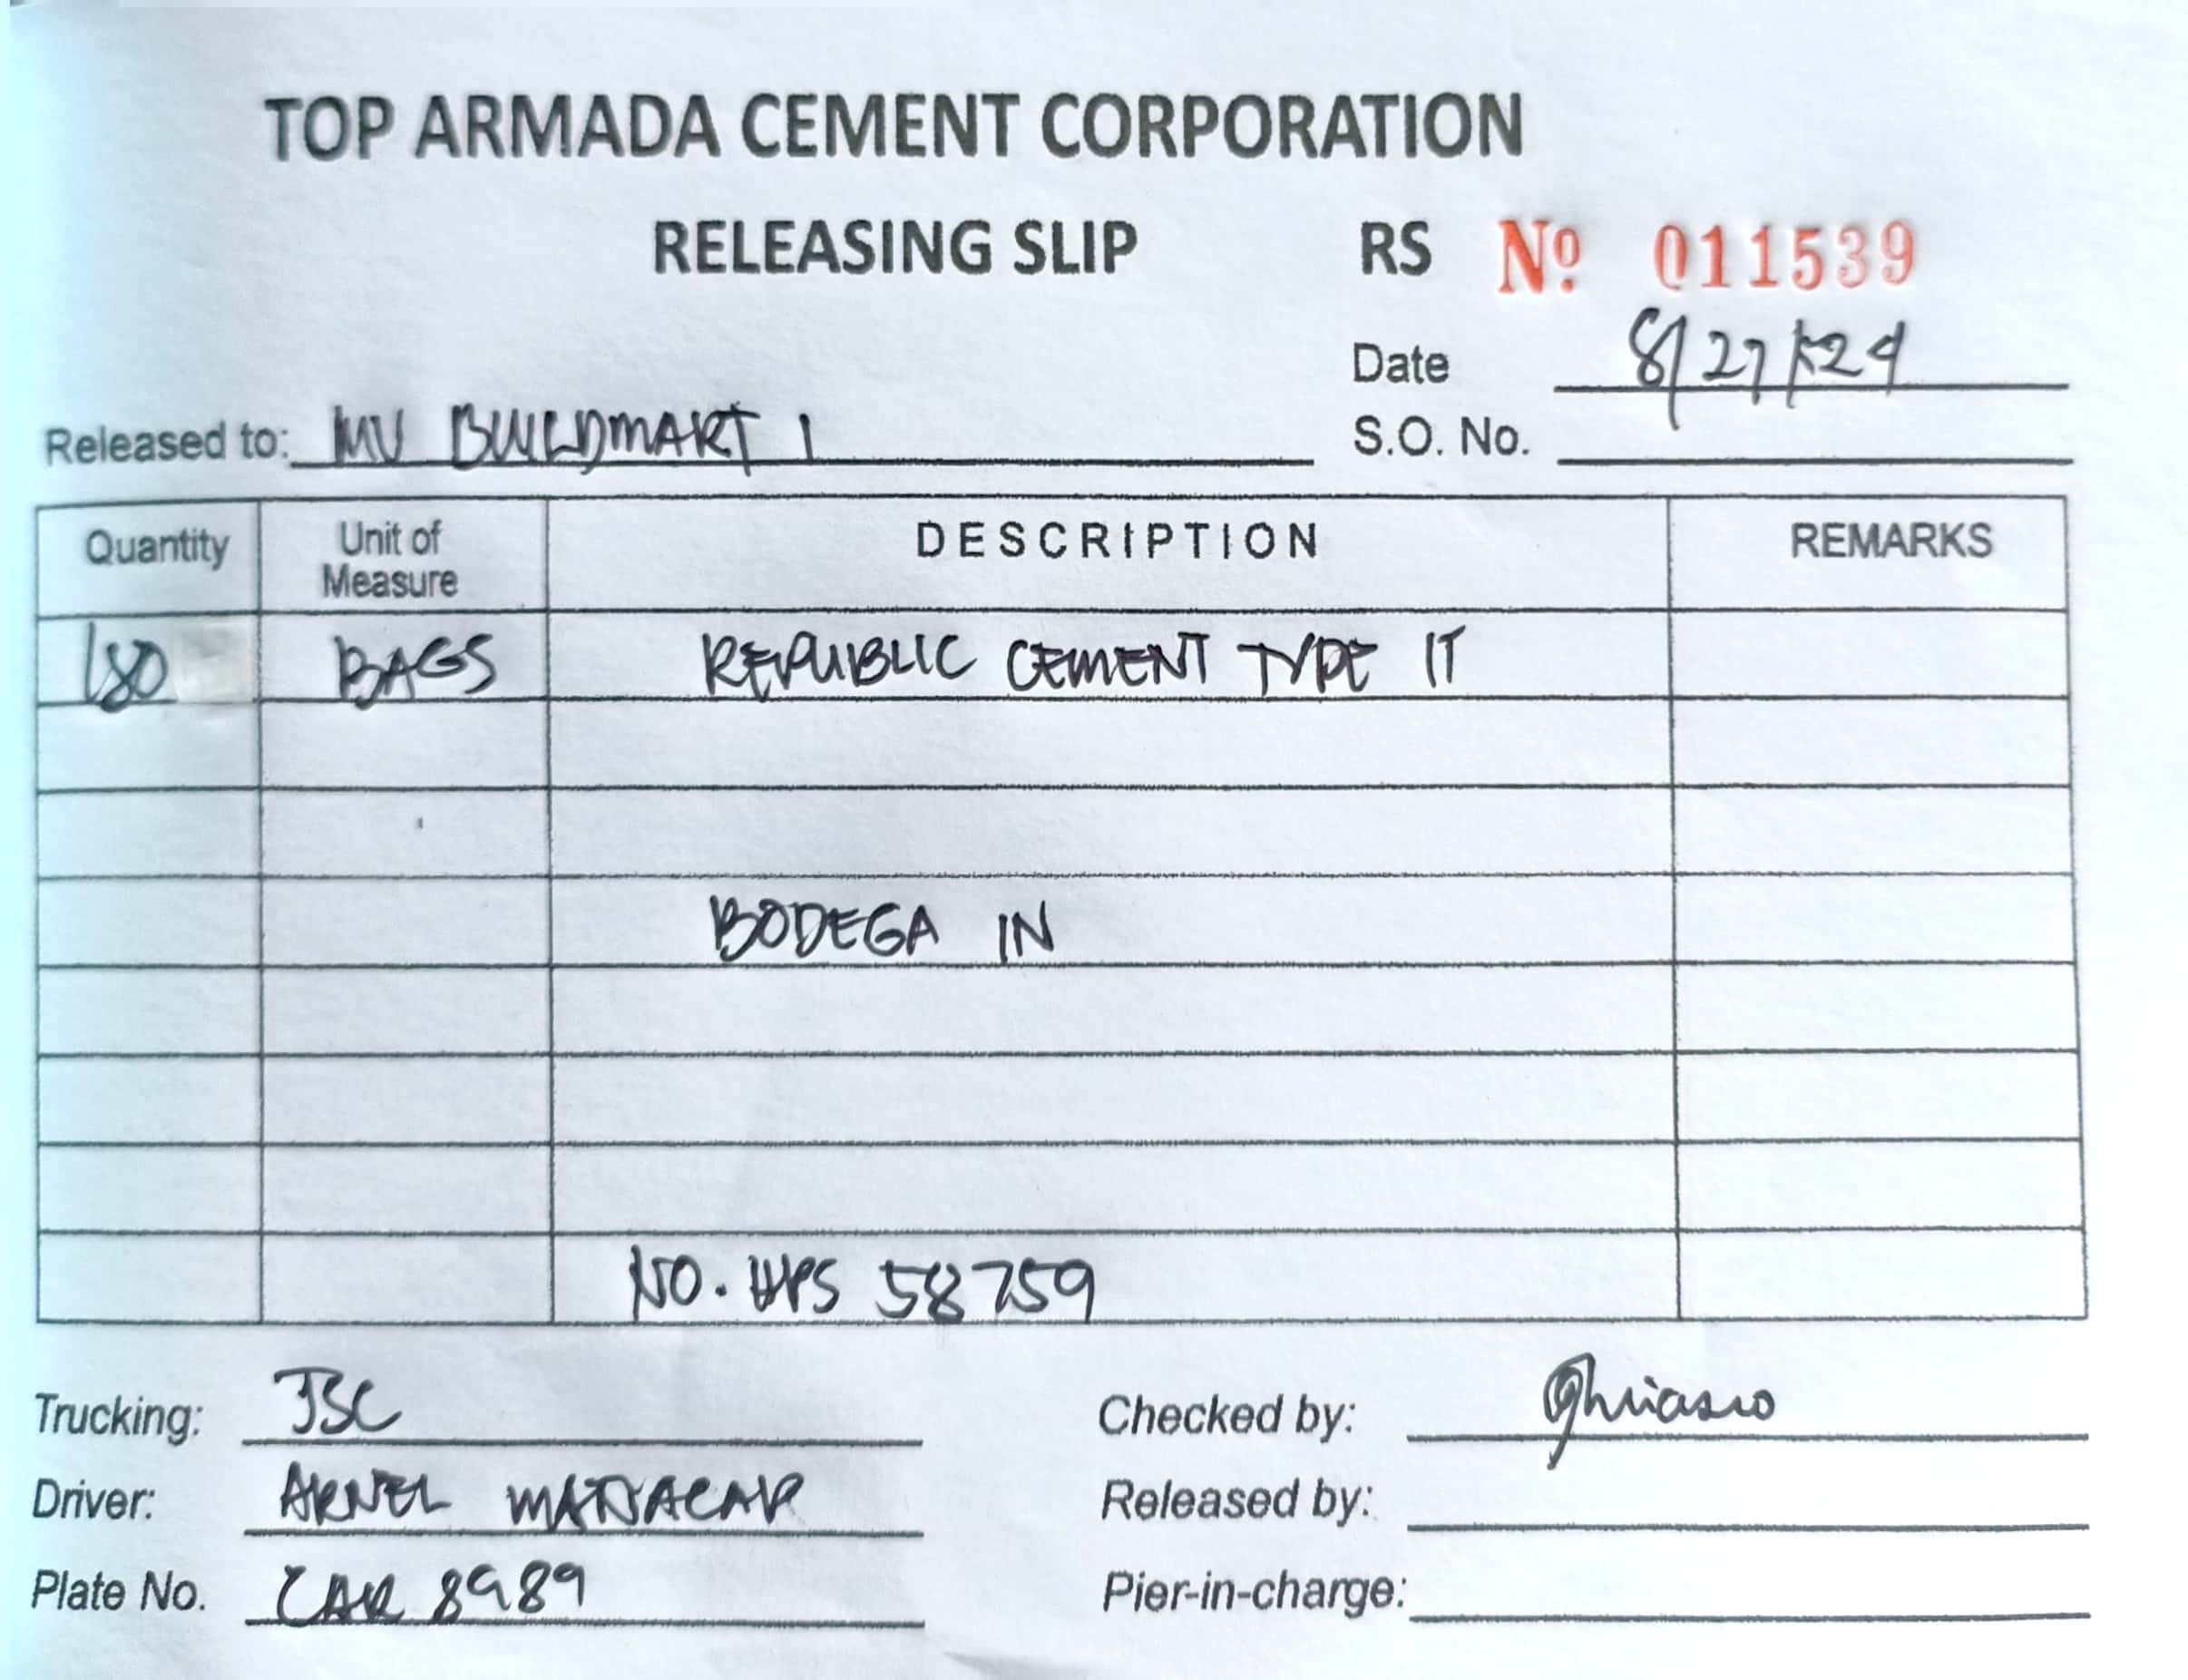 TOP ARMADA CEMENT CORPORATION
RELEASING SLIP RS Nº 011539
Date 8/27/24
Released to: MV BUILDMART 1 S.O. No.
Quantity Unit of Measure DESCRIPTION REMARKS
180 BAGS REPUBLIC CEMENT TYPE IT
BODEGA IN
NO. WPS 58759
Trucking: JSC Checked by:
Driver: ARNEL Released by:
Plate No. CAR 8989 Pier-in-charge: